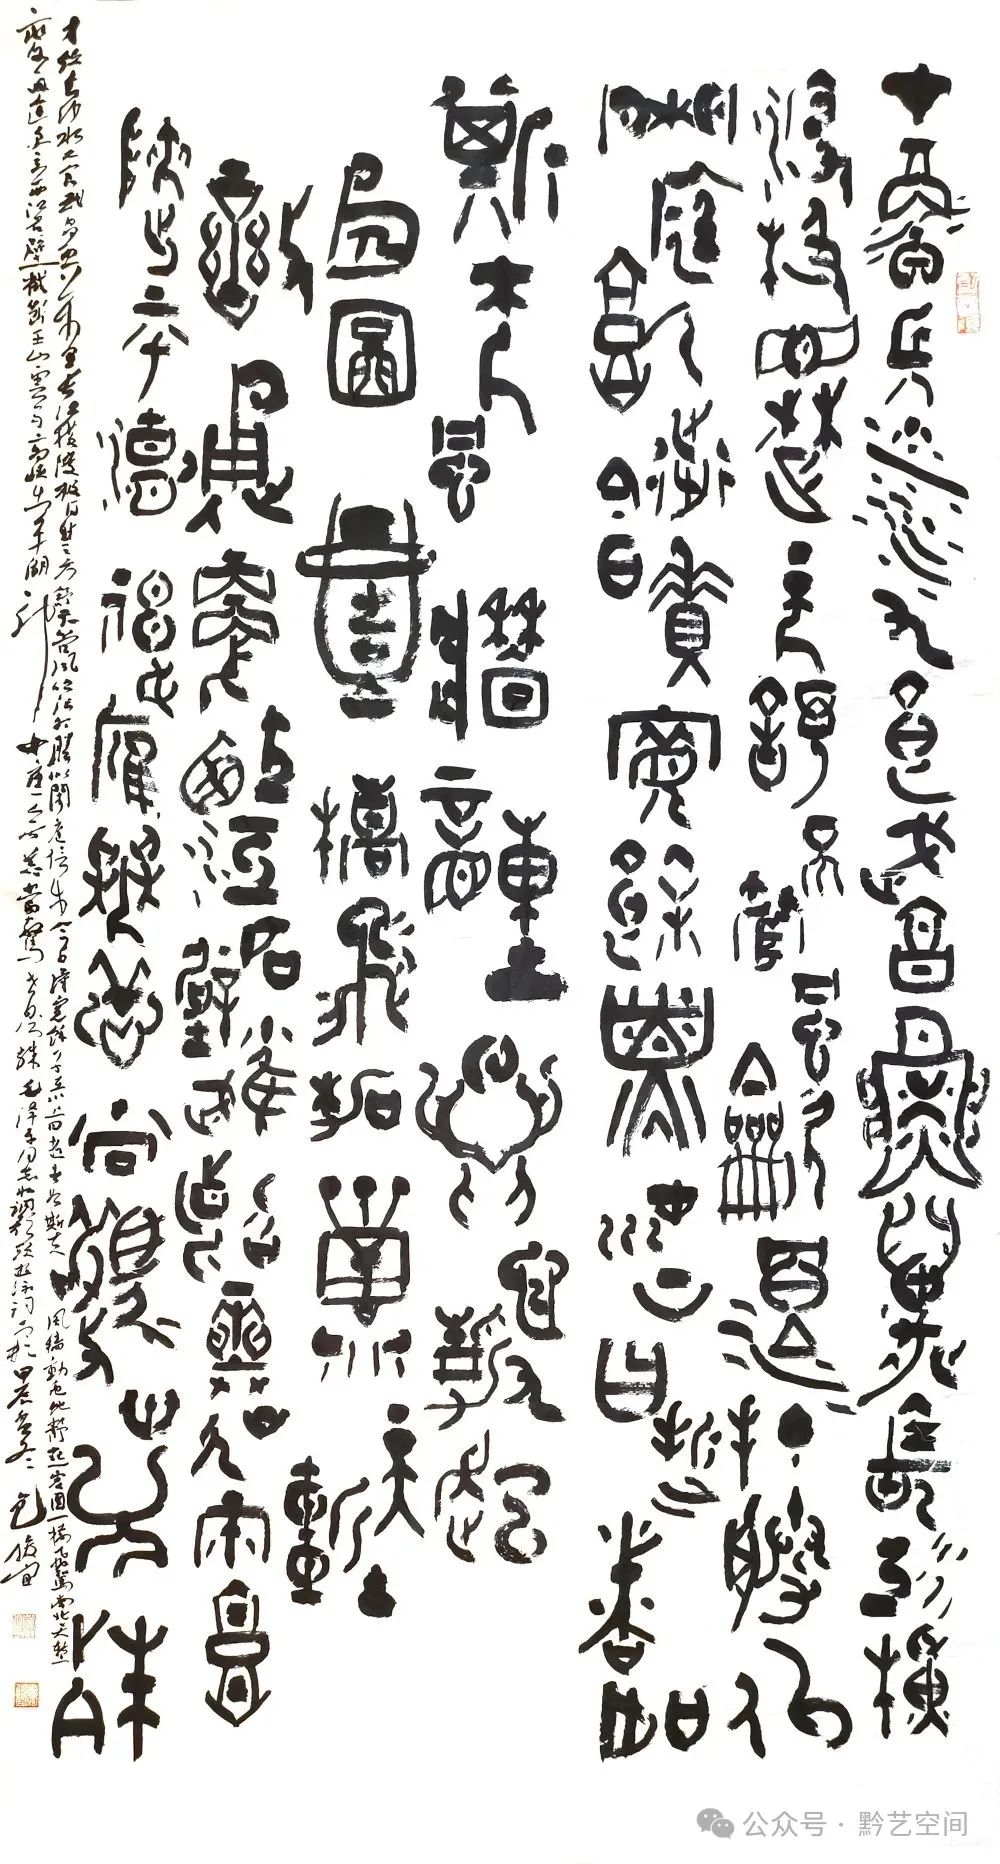 才飲長沙水又食武昌魚萬里長江橫
渡極目楚天舒不管風吹浪打勝似
閒庭信步今日得寬餘子在川上曰逝者如
斯夫風檣動龜蛇靜起
宏圖一橋飛架南北天塹
變通途更立西江石壁截斷巫山雲雨高
峽出平湖神女應無恙當驚世界殊
才飲長沙水又食武昌魚萬里長江橫渡極目楚天舒不管風吹浪打勝似閒庭信步今日得寬餘子在川上曰逝者如斯夫風檣動龜蛇靜起宏圖一橋飛架南北天塹
變通途更立西江石壁截斷巫山雲雨高峽出平湖神女應無恙當驚世界殊毛澤東同志水調歌頭游泳詞甲辰冬
公众号·黔艺空间